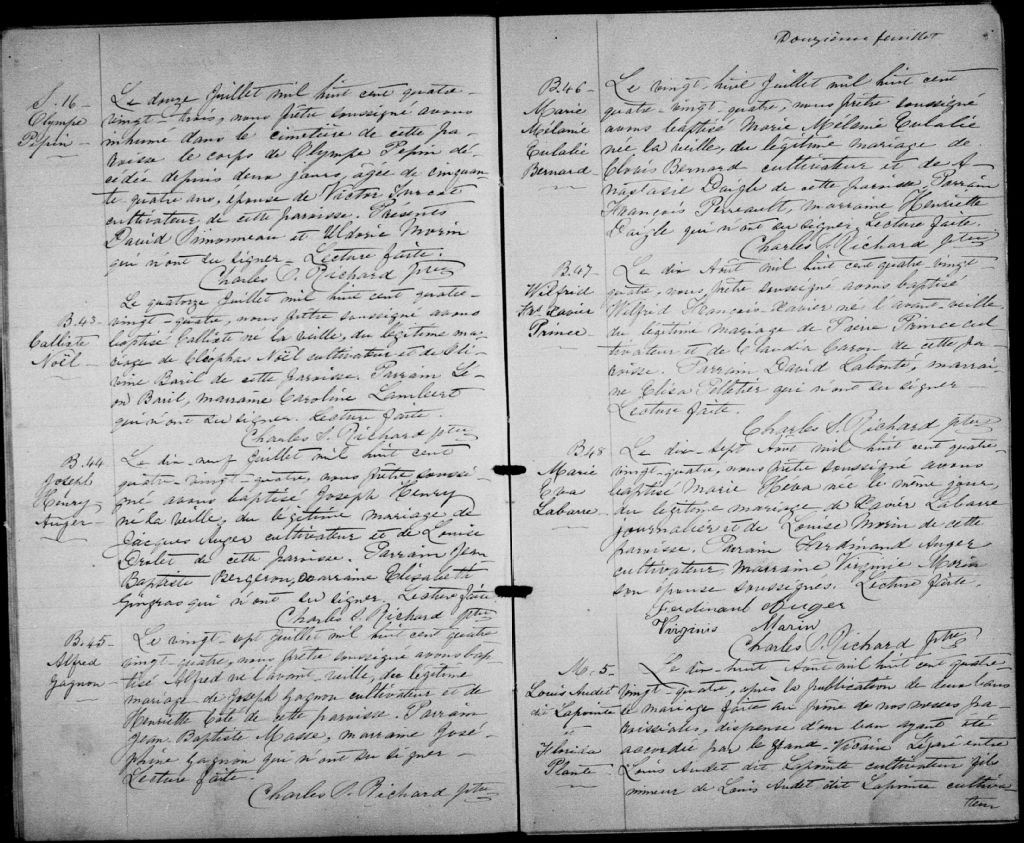 S. 16-
Olympe
Pépin-
Le douze Juillet mil huit cent quatre-
vingt-trois, nous prêtre soussigné avons
inhumé dans le cimetière de cette pa-
roisse le corps de Olympe Pepin dé-
cédée depuis deux jours, âgée de cinquan-
te quatre ans, épouse de Victor Turcot
cultivateur de cette paroisse. Présents
David Simonneau et Uldoric Morin
qui n'ont su signer- Lecture faite.
Charles S. Richard ptre
B. 43-
Calliste
Noël-
Le quatorze Juillet mil huit cent quatre-
vingt-quatre, nous prêtre soussigné avons
baptisé Calliste né la veille, du légitime ma-
riage de Cléophas Noël cultivateur et de Oli-
vine Baril de cette paroisse. Parrain Lé-
on Baril, marraine Caroline Lambert
qui n'ont su signer. Lecture faite.
Charles S. Richard ptre
B. 44
Joseph
Henry
Auger-
Le dix-neuf Juillet mil huit cent
quatre-vingt-quatre, nous prêtre soussi-
gné avons baptisé Joseph Henry
né la veille, du légitime mariage de
Jacques Auger cultivateur et de Louise
Drolet de cette paroisse. Parrain Jean
Baptiste Bergeron, marraine Elisabeth
Gingras qui n'ont su signer. Lecture faite
Charles S. Richard ptre
B. 45-
Alfred
Gagnon-
Le vingt-sept Juillet mil huit cent quatre
vingt-quatre, nous prêtre soussigné avons bap-
tisé Alfred né l'avant-veille, du légitime
mariage de Joseph Gagnon cultivateur et de
Henriette Coté de cette paroisse. Parrain
Jean Baptiste Masse, marraine José-
phine Gagnon qui n'ont su signer-
Lecture faite.
Charles S. Richard ptre
Douzième feuillet
B. 46-
Marie
Mélanie
Eulalie
Bernard-
Le vingt-huit Juillet mil huit cent
quatre-vingt-quatre, nous prêtre soussigné
avons baptisé Marie Mélanie Eulalie
née la veille, du légitime mariage de
Clovis Bernard cultivateur et de A-
nastasie Daigle de cette paroisse. Parrain
François Perreault, marraine Henriette
Daigle qui n'ont su signer. Lecture faite.
Charles S. Richard ptre
B. 47-
Wilfrid
Frs Xavier
Prince-
Le dix Août mil huit cent quatre vingt-
quatre, nous prêtre soussigné avons baptisé
Wilfrid François Xavier né l'avant-veille
du légitime mariage de Pierre Prince cul-
tivateur et de Claudia Caron de cette pa-
roisse. Parrain David Labonté, marrai-
ne Eliza Pelletier qui n'ont su signer-
Lecture faite.
Charles S. Richard ptre
B. 48
Marie
Eva
Labarre-
Le dix-sept Août mil huit cent quatre-
vingt-quatre, nous prêtre soussigné avons
baptisé Marie Héva née le même jour,
du légitime mariage de Xavier Labarre
journalier et de Louise Morin de cette
paroisse. Parrain Ferdinand Auger
cultivateur, marraine Virginie Morin
son épouse soussignés. Lecture faite.
Ferdinant Auger
Virginis Marin
Charles S. Richard ptre
M. 5-
Louis Audet
dit Lapointe
et
Floricia
Plante
Le dix-huit Août mil huit cent quatre
vingt-quatre, après la publication de deux bans
de mariage faite au prône de nos messes pa-
roissiales, dispense d'un ban ayant été
accordée par le Grand-Vicaire Légaré entre
Louis Audet dit Lapointe cultivateur fils
mineur de Louis Audet dit Lapointe cultiva-
teur